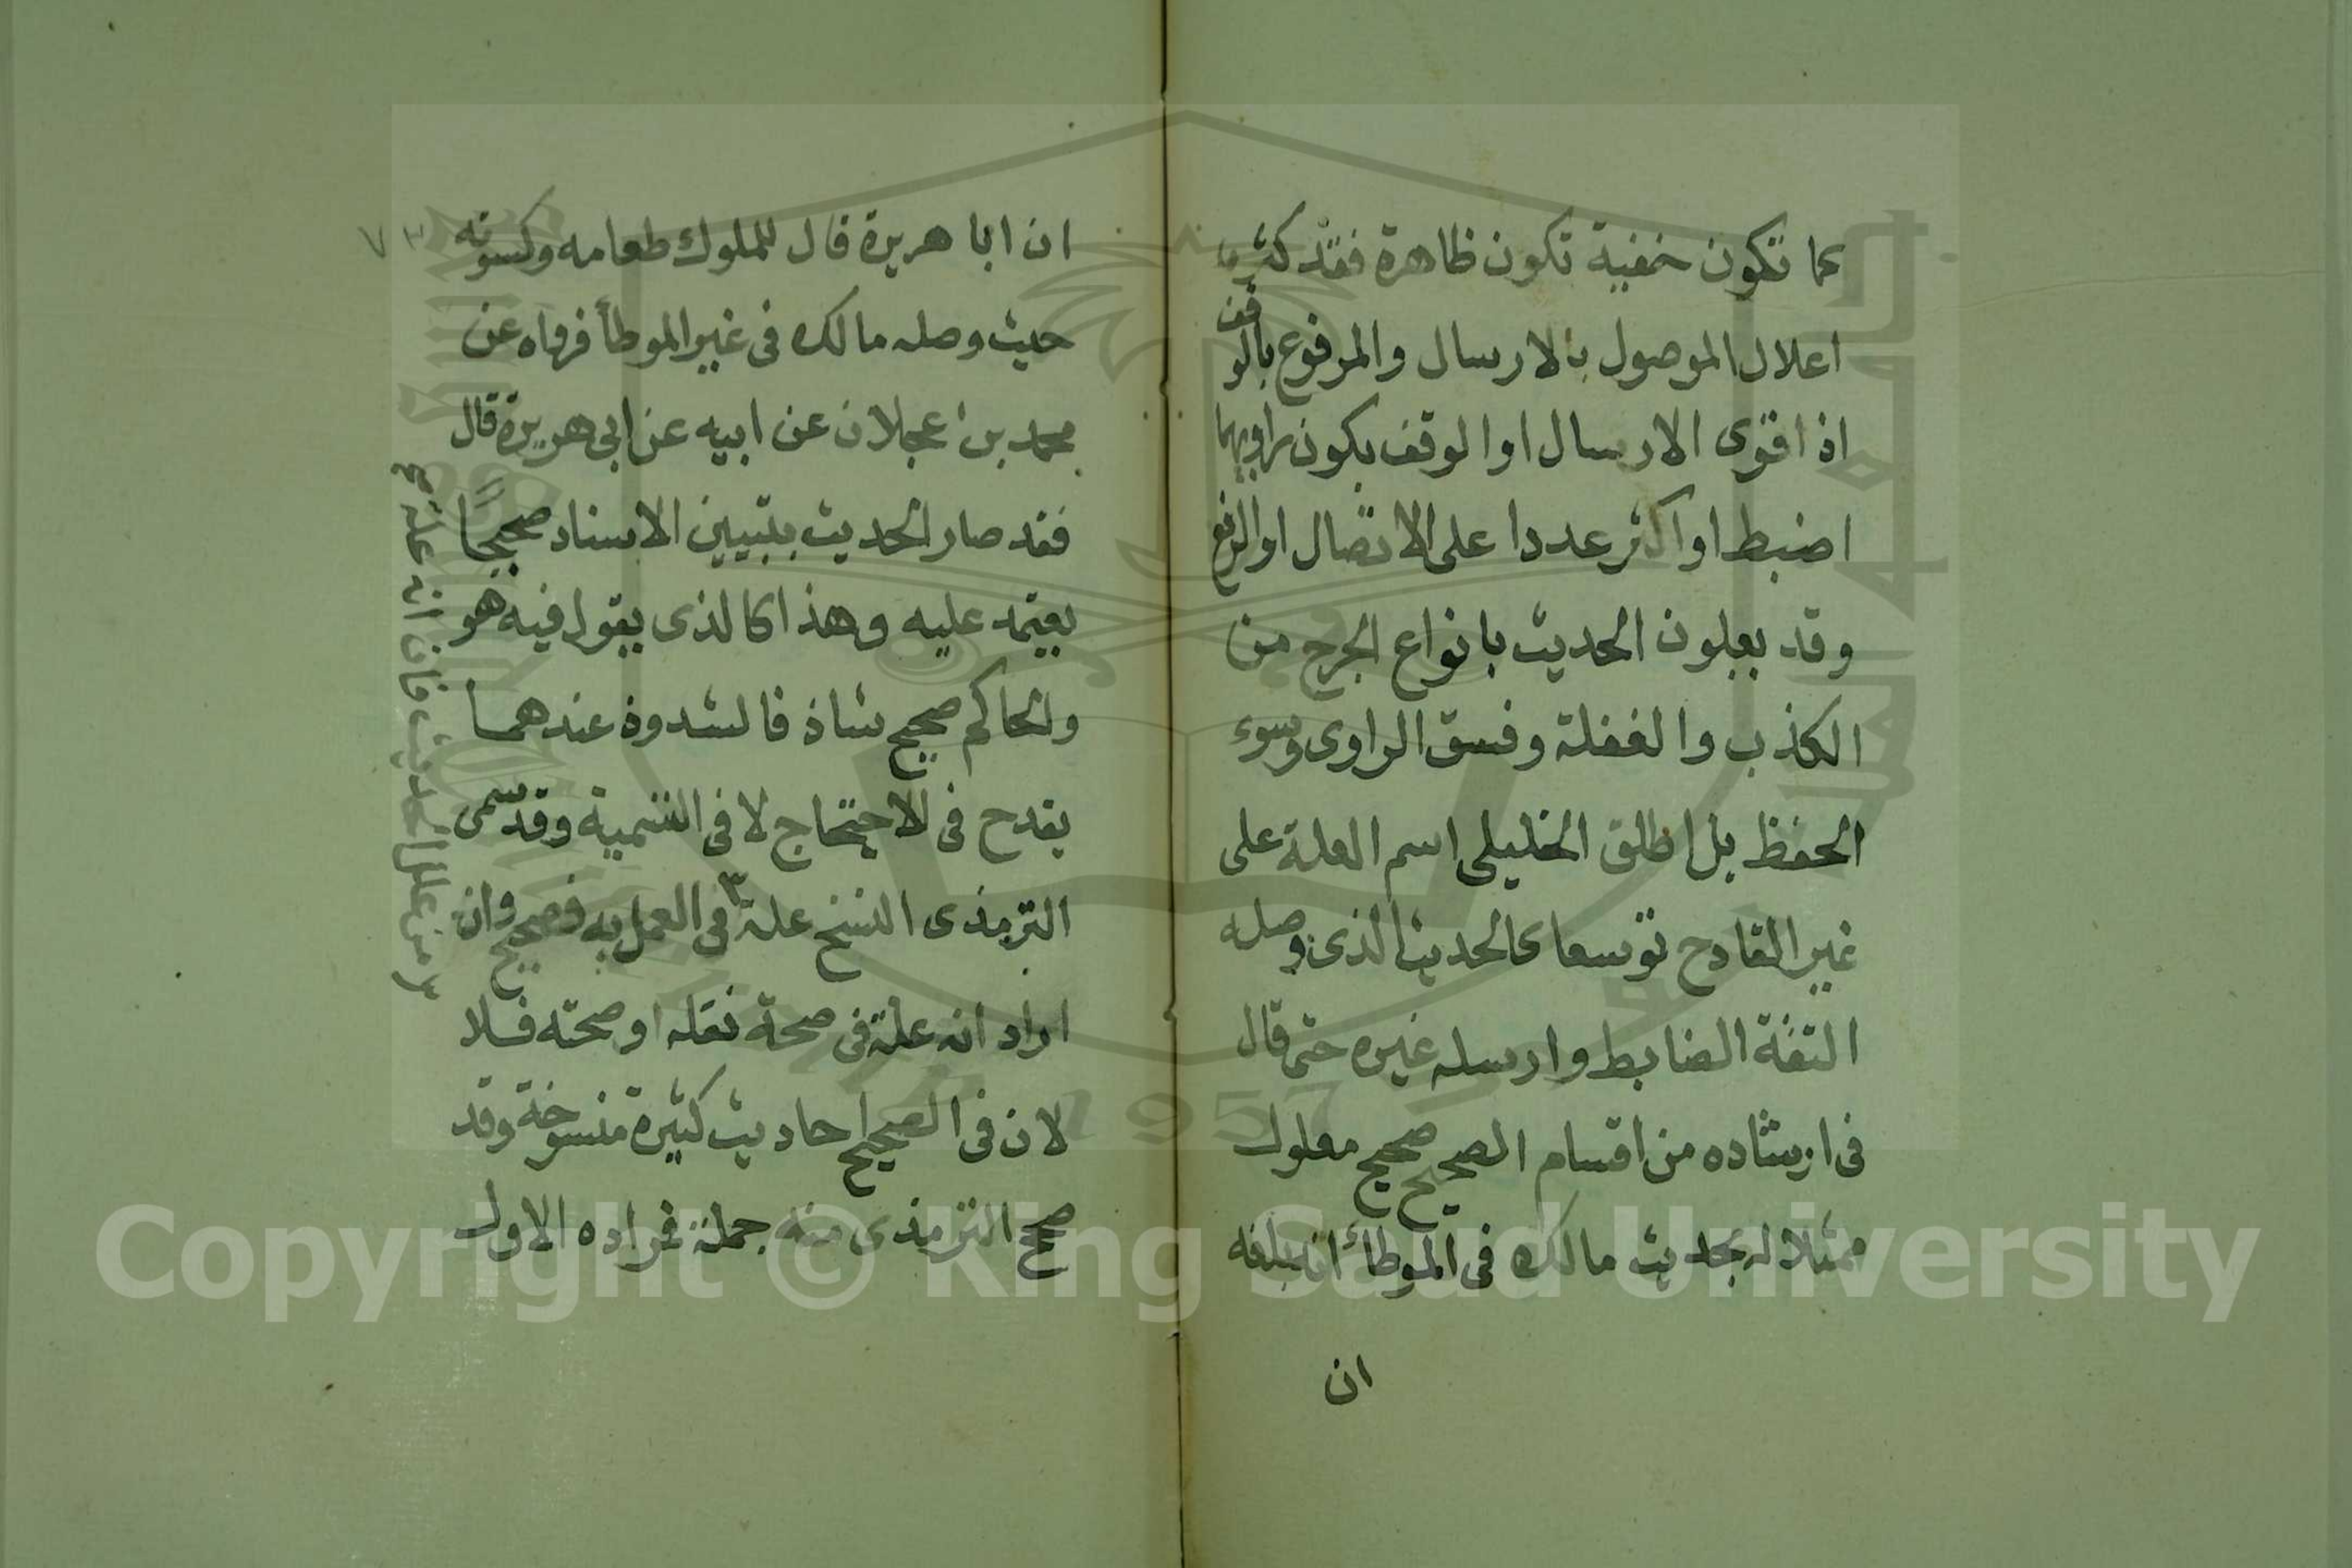 كما تكون خفية تكون ظاهرة فقد كثر
اعلال الموصول بالارسال والمرفوع بالوقف
اذا قوى الارسال او الوقف بكون راويهما
اضبط او اكثر عددا على الاتصال او الرفع
وقد يعلون الحديث بانواع الجرح من
الكذب والغفلة وفسق الراوى وسوء
الحفظ بل اطلق الخليلى اسم العلة على
غير القادح توسعا كالحديث الذى وصله
الثقة الضابط وارسله غيره حتى قال
فى ارشاده من اقسام الصحيح صحيح معلول
ممثلا له بحديث مالك فى الموطأ انه بلغه
ان
ان ابا هريرة قال للملوك طعامه وكسوته
حيث وصله مالك فى غير الموطأ فرواه عن
محمد بن عجلان عن ابيه عن ابى هريرة قال
فقد صار الحديث بتبيين الاسناد صحيحًا
يعتمد عليه وهذا كالذى يقول فيه هو
والحاكم صحيح شاذ فالشذوذ عندهما
يقدح فى الاحتجاج لا فى التسمية وقد سمى
الترمذى النسخ علة ٣ فى العمل به فصحيح وان
اراد انه علة فى صحة نقله او صحته فلا
لان فى الصحيح احاديث كثيرة منسوخة وقد
صحح الترمذى منه جملة فمراده الاول
٣ من علل الحديث فان انه علة صح
٧٣
Copyright © King Saud University
1957